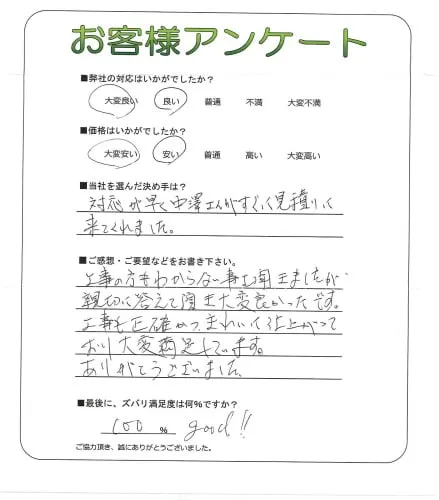 お客様アンケート
■弊社の対応はいかがでしたか？
大変良い 良い 普通 不満 大変不満
■価格はいかがでしたか？
大変安い 安い 普通 高い 大変高い
■当社を選んだ決め手は？
対応が早く中澤さんがすぐに見積りに
来てくれました。
■ご感想・ご要望などをお書き下さい。
工事の方もわからない事も聞きましたが
親切に答えて 大変良かったです。
工事も正確かつ、きれいに仕上がって
おり大変満足しています。
ありがとうございました。
■最後に、ズバリ満足度は何%ですか？
100 % good!!
ご協力頂き、誠にありがとうございました。